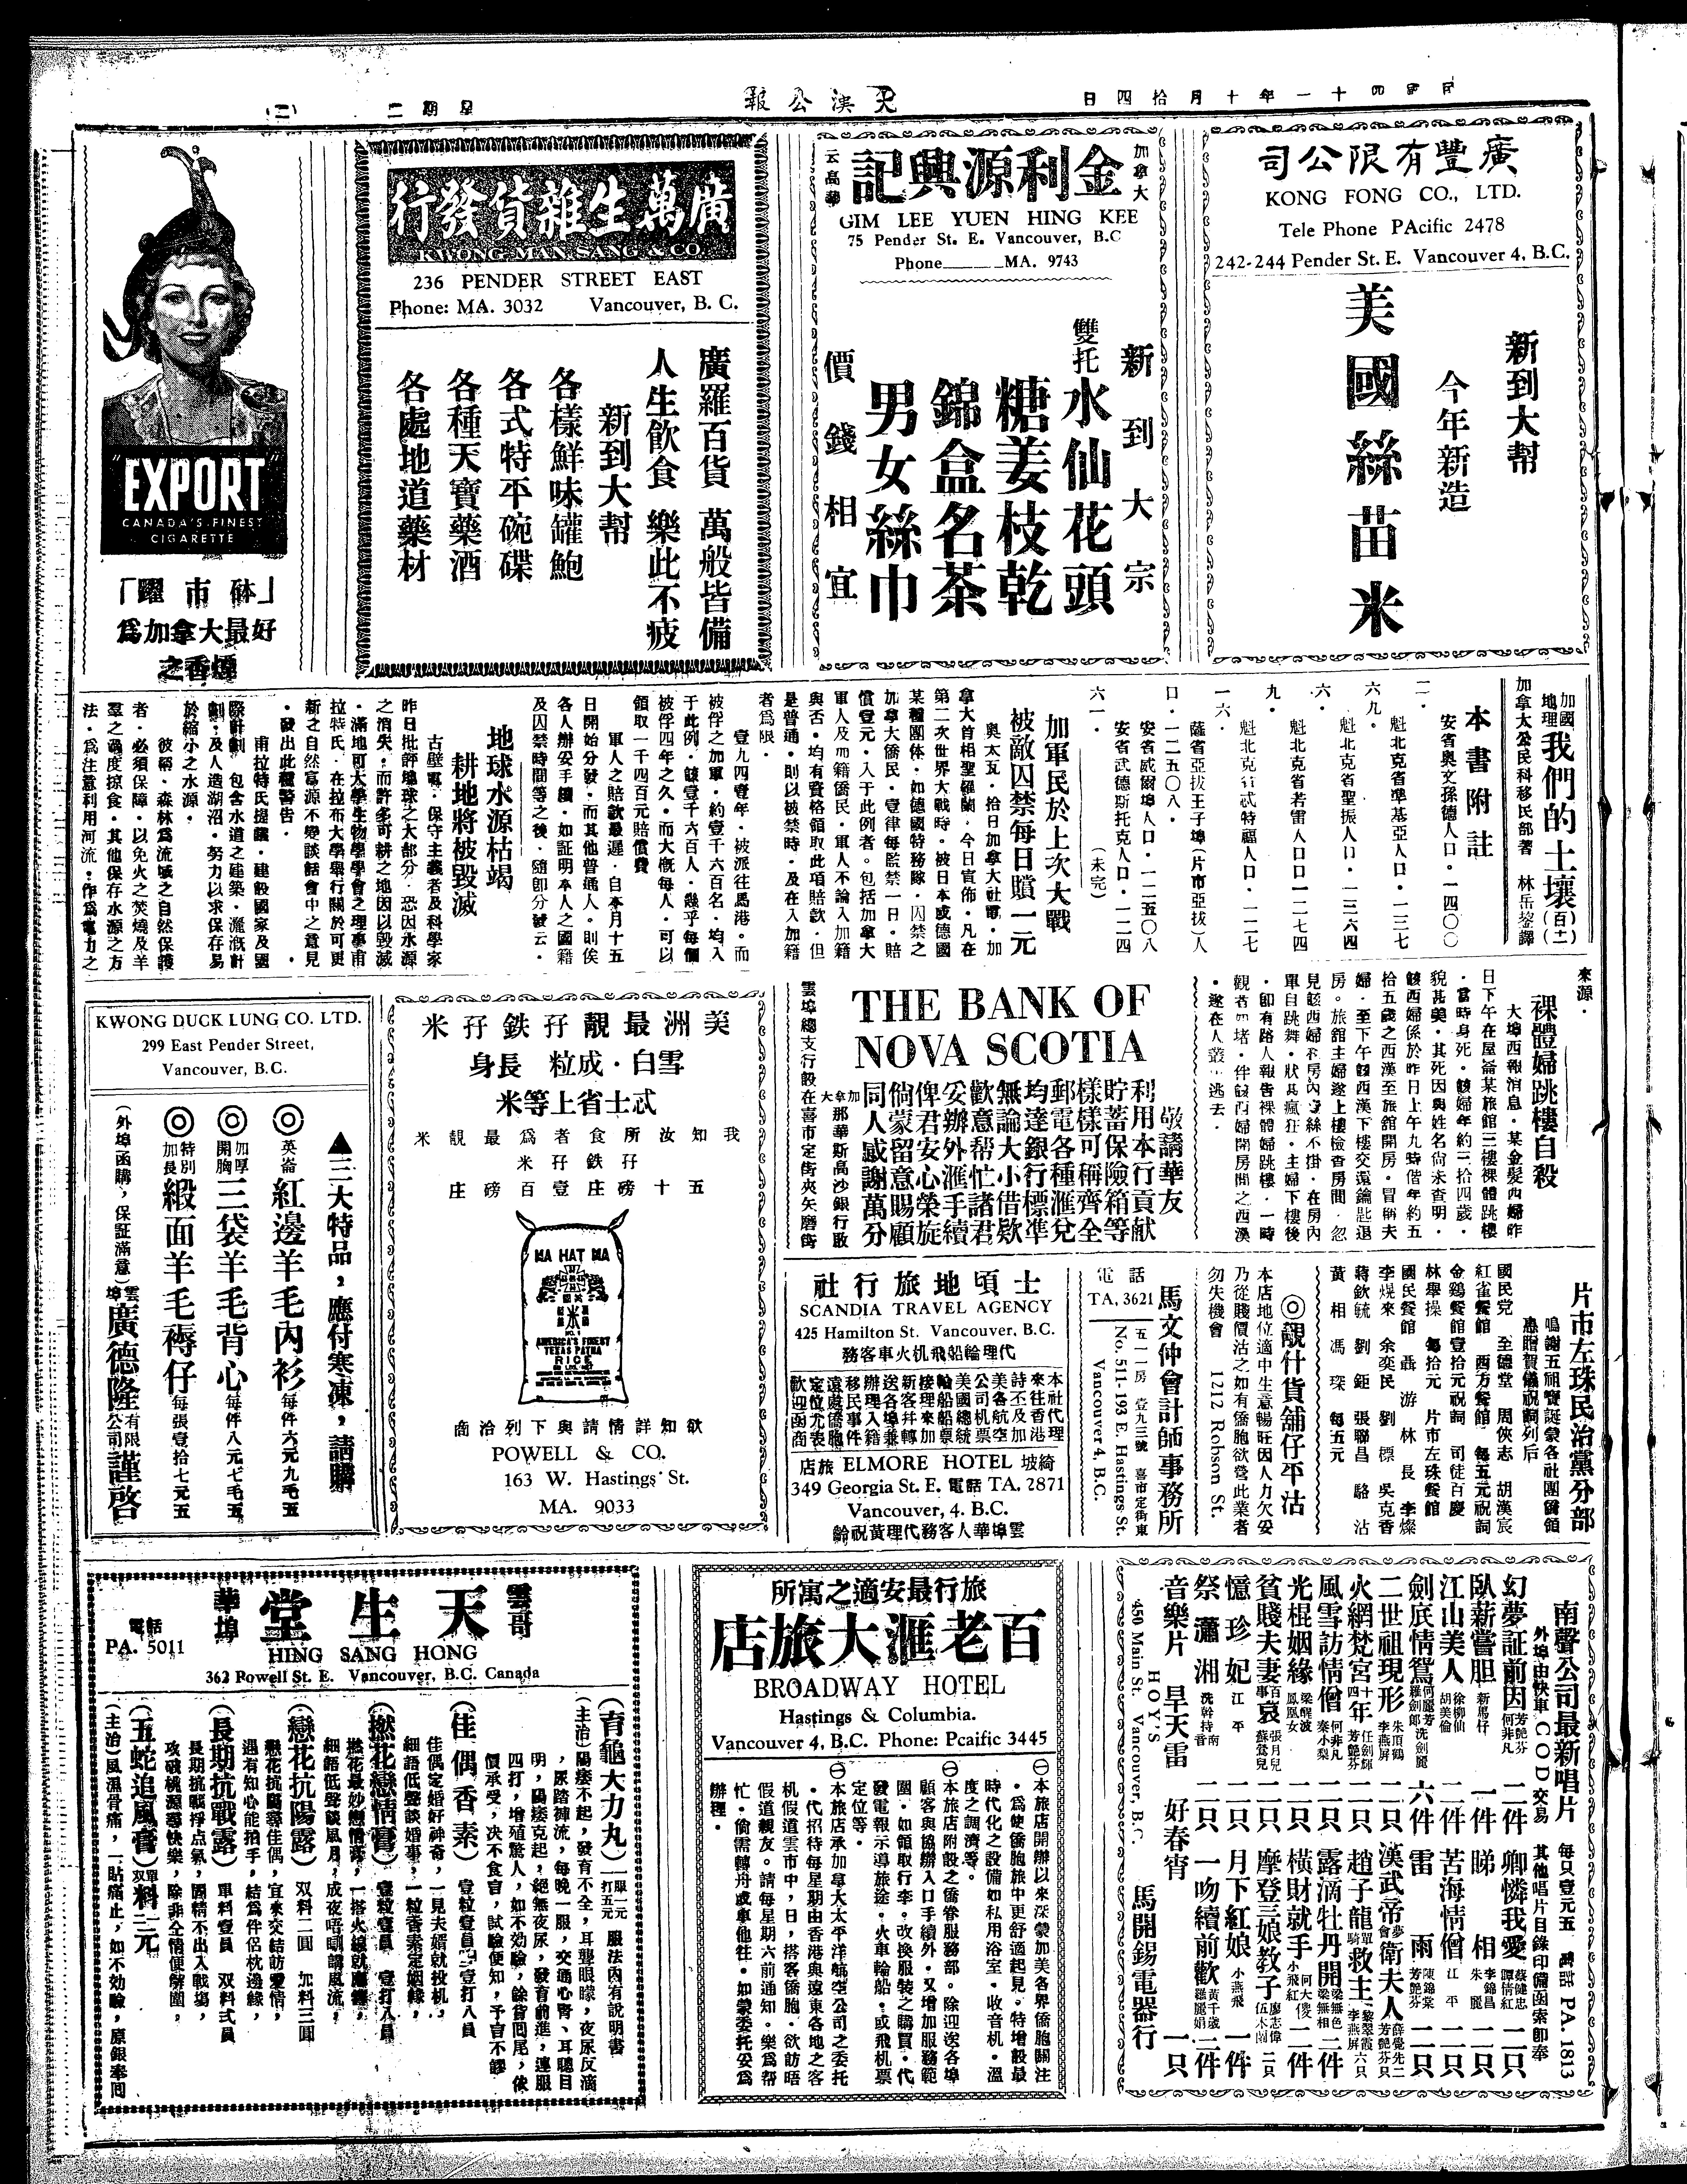 日四拾月十年一十四國民
報公漢大
二期星
(二)
司公限有豐廣
KONG FONG CO., LTD.
Tele Phone PAcific 2478
242-244 Pender St. E. Vancouver 4, B.C.
新到大幫
今年新造
美國絲苗米
加拿大
記興源利金
云高華
GIM LEE YUEN HING KEE
75 Pender St. E. Vancouver, B.C
Phone MA. 9743
新到大宗
雙托水仙花頭
糖姜枝乾
錦盒名茶
男女絲巾
價錢相宜
行發貨雜生萬廣
KWONG MAN SANG & CO
236 PENDER STREET EAST
Phone: MA. 3032 Vancouver, B. C.
廣羅百貨 萬般皆備
人生飲食 樂此不疲
新到大幫
各樣鮮味罐鮑
各式特平碗碟
各種天寶藥酒
各處地道藥材
"EXPORT"
CANADA'S FINEST
CIGARETTE
「躍市砵」
為加拿大最好
之香煙
加國地理 我們的土壤
加拿大公民科移民部著 林岳鋆譯
本書附註
安省奧文孫德人口·一四〇〇
二·
魁北克省準基亞人口·一三七
六九·
魁北克省聖振人口·一三六四
六·
魁北克省若雷人口一二七四
九·
魁北克省武特福人口·一二七
一六·
薩省亞拔王子埠(片市亞拔)人
口·一二五〇八·
安省威爾埠人口·一二五〇八
安省武德斯托克人口·一二四
六一·
(未完)
加軍民於上次大戰
被敵囚禁每日賠一元
奧太瓦·拾日加拿大社電·加
拿大首相聖羅蘭·今日宣佈·凡在
第二次世界大戰時·被日本或德國
某種團体·如德國特務隊·囚禁之
加拿大僑民·壹律每監禁一日·賠
償壹元·入于此例者·包括加拿大
軍人及加籍僑民·軍人不論入加籍
與否·均有資格領取此項賠款·但
是普通·則以被禁時·及在入加籍
者為限·
壹九四壹年·被派往馬港·而
被俘之加軍·約壹千六百名·均入
于此例·該壹千六百人·幾乎每個
被俘四年之久·而大概每人·可以
領取一千四百元賠償費
軍人之賠款最遲·自本月十五
日開始分發·而其他普通人·則俟
各人辦妥手續·如証明本人之國籍
及囚禁時間等之後·隨卽分發云·
地球水源枯竭
耕地將被毀滅
古壁電·保守主義者及科學家
昨日批評地球之大部分·恐因水源
之消失·而許多可耕之地因以毀滅
·滿地可大學生物學學會之理事甫
拉特氏·在拉布大學舉行關於可更
新之自然富源不變談話會中之意見
·發出此種警告·
甫拉特氏提議·建設國家及國
際計劃·包含水道之建築·灌溉計
劃·及人造湖沼·努力以求保存易
於縮小之水源·
彼稱·森林為流域之自然保護
者·必須保障·以免火之焚燒及羊
羣之過度掠食·其他保存水源之方
法·為注意利用河流·作為電力之
來源·
裸體婦跳樓自殺
大埠西報消息·某金髮西婦昨
日下午在屋崙某旅館三樓裸體跳樓
·當時身死·該婦年約三拾四歲·
貌甚美·其死因與姓名尙未查明·
該西婦係於昨日上午九時偕年約五
拾五歲之西漢至旅舘開房·冒稱夫
婦·至下午該西漢下樓交還鑰匙退
房。旅舘主婦遂上樓檢查房間·忽
見該西婦在房內寸絲不掛·在房內
單自跳舞·狀甚瘋狂·主婦下樓後
·卽有路人報告裸體婦跳樓·一時
觀者如堵·伴該西婦開房間之西漢
·遂在人叢中逃去·
THE BANK OF
NOVA SCOTIA
敬請華友
利用本行貢献
貯蓄保險箱等
樣樣可稱齊全
郵電各種滙兌
均達銀行標準
無論大小借欵
歡意帮忙諸君
妥辦外滙手續
俾君安心榮旋
倘蒙留意賜顧
同人感謝萬分
加拿大那華斯高沙銀行啟
雲埠總支行設在喜市定街夾矢磨街
米孖鉄孖靚最洲美
身長 粒成·白雪
米等上省士忒
米靚最為者食所汝知我
米孖鉄孖
庄磅百壹庄磅十五
MA HAT MA
米
NO. 1
AMERICA'S FINEST
TEXAS PATNA
RICE
商洽列下與請情詳知欲
POWELL & CO.
163 W. Hastings St.
MA. 9033
KWONG DUCK LUNG CO. LTD.
299 East Pender Street,
Vancouver, B.C.
▲三大特品,應付寒凍,請購
◎英崙 紅邊羊毛內衫 每件六元九毛五
◎加厚開胸 三袋羊毛背心 每件八元七毛五
◎特別加長 緞面羊毛褥仔 每張壹拾七元五
(外埠函購,保証滿意)
雲埠廣德隆有限公司謹啓
片市左珠民治黨分部
鳴謝五祖寶誕蒙各社團僑領
惠贈賀儀祝詞列后
國民党 至德堂 周俠志 胡漢宸
紅雀餐館 西方餐館 每五元祝詞
金鷄餐館壹拾元祝詞 司徒百慶
林舉操 每拾元 片市左珠餐館
國民餐館 聶游 林長 李燦
李焜來 余奕民 劉標 吳克香
蔣欽毓 劉鉅 張聯昌 駱沾
黃相 馮琛 每五元
◎靚什貨舖仔平沽
本店地位適中生意暢旺因人力欠妥
乃從賤價沽之如有僑胞欲營此業者
勿失機會 1212 Robson St.
馬文仲會計師事務所
五一一房 壹九三號 喜市定街東
電話
TA. 3621
No. 511-193 E. Hastings St.
Vancouver 4, B.C.
社行旅地頃士
SCANDIA TRAVEL AGENCY
425 Hamilton St. Vancouver, B.C.
務客車火机飛船輪理代
本社代理
來往香港
詩丕及加
美各航空
公司机票
美國總統
輪船船票
接理來加
新客幷轉
送各埠兼
辦理入籍
移民事件
遠處僑胞
定位尤表
歡迎函商
店旅 ELMORE HOTEL 坡綺
349 Georgia St. E. 電話 TA. 2871
Vancouver, 4. B.C.
齡祝黃理代務客人華埠雲
南聲公司最新唱片
每只壹元五 電話 PA. 1813
外埠由快車COD交易 其他唱片目錄印備函索卽奉
幻夢証前因 芳艷芬 何非凡 二件
卿憐我愛 蔡健忠 譚倩紅 二只
臥薪嘗胆 新馬仔 一件
睇相 李錦昌 朱麗 一只
江山美人 徐柳仙 胡美倫 二件
苦海情僧 江平 一只
劍底情鴛 何麗芳 冼劍麗 羅劍郎 六件
雷雨 陳錦棠 芳艷芬 二只
二世祖現形 朱頂鶴 李燕屏 一只
漢武帝夢會衛夫人 薛覺先 芳艷芬 二只
火網梵宮十四年 任劍輝 芳艷芬 二只
趙子龍單騎救主 黎翠霞 李燕屏 六只
風雪訪情僧 何非凡 秦小梨 二只
露滴牡丹開 梁無色 梁無相 二件
光棍姻緣 梁醒波 鳳凰女 二只
橫財就手 何大傻 小飛紅 二件
貧賤夫妻百事哀 張月兒 蘇鶯兒 二只
摩登三娘教子 廖志偉 伍木蘭 二只
憶珍妃 江平 二只
月下紅娘 小燕飛 一件
祭瀟湘 冼幹持 南音 二只
一吻續前歡 黃千歲 羅麗娟 二件
音樂片 旱天雷 好春宵 一只
HOY'S
450 Main St. Vancouver, B.C
馬開錫電器行
所寓之適安最行旅
店旅大滙老百
BROADWAY HOTEL
Hastings & Columbia.
Vancouver 4, B.C. Phone: Pcaific 3445
㊀本旅店開辦以來深蒙加美各界僑胞關注
·為使僑胞旅中更舒適起見·特增設最
時代化之設備如私用浴室·收音机·溫
度之調濟等·
㊀本旅店附設之僑眷服務部·除迎送各埠
顧客與協辦入口手續外·又增加服務範
圍·如領取行李·改換服裝之購買·代
發電報示導旅途·火車輪船·或飛机票
定位等·
㊀本旅店承加拿大太平洋航空公司之委托
·代招待每星期由香港與遠東各地之客
机假道雲市中,日,搭客僑胞·欲訪晤
假道親友。請每星期六前通知。樂為帮
忙·倘需轉舟或車他往·如蒙委托妥為
辦理·
雲哥
堂生天
華埠
電話
PA. 5011
HING SANG HONG
362 Powell St. E. Vancouver, B.C. Canada
(育龜大力丸) 一服一元 一打五元 服法內有說明書
(主治)陽痿不起,發育不全,耳聾眼矇,夜尿反滴
,尿踏褲流,每晚一服,交通心腎、耳聰目
明,陽痿克起,絕無夜尿,發育前進,連服
四打,增殖驚人,如不効驗,餘貨囘尾,依
價承受,决不食言,試驗便知,予言不謬
(佳偶香素) 壹粒壹員 壹打八員
佳偶定婚好神奇,一見夫婿就投机,
細語低聲談婚事,一粒香素定姻緣,
(撚花戀情膏) 壹粒壹員 壹打八員
撚花最妙戀情膏,一搭火線就魔纏,
細語低聲談風月,成夜唔瞓講風流,
(戀花抗陽露) 双料二圓 加料三圓
戀花抗陽尋佳偶,宜來交結訪愛情,
遇有知心能拍手,結為伴侶枕邊緣,
(長期抗戰露) 單料壹員 双料弍員
長期抗戰爭点氣,團精不出入戰塲,
攻破桃源尋快樂,除非全情便解圍,
(五蛇追風膏) 單料一元 双料二元
(主治)風濕骨痛,一貼痛止,如不効驗,原銀奉囘